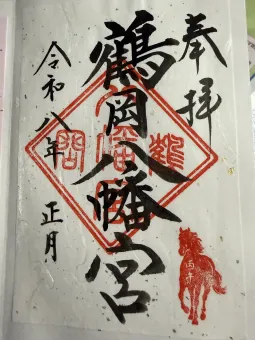 奉拝
鶴岡八幡宮
令和八年 正月
丙午